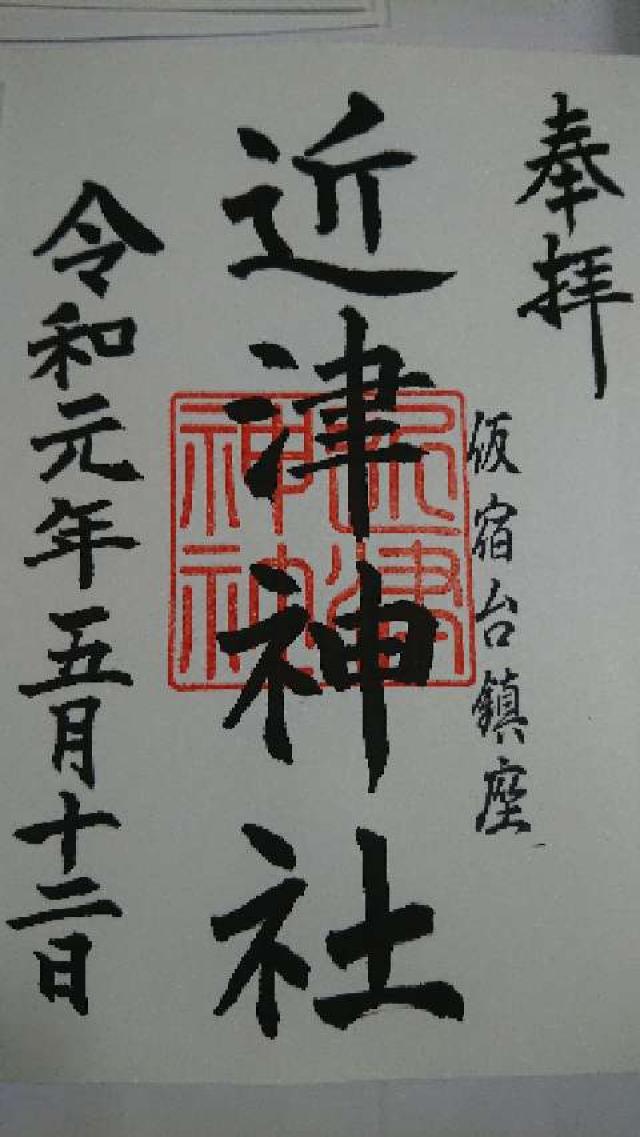 奉拝
仮宿台鎮座
近津神社
近津神社
令和元年五月十二日